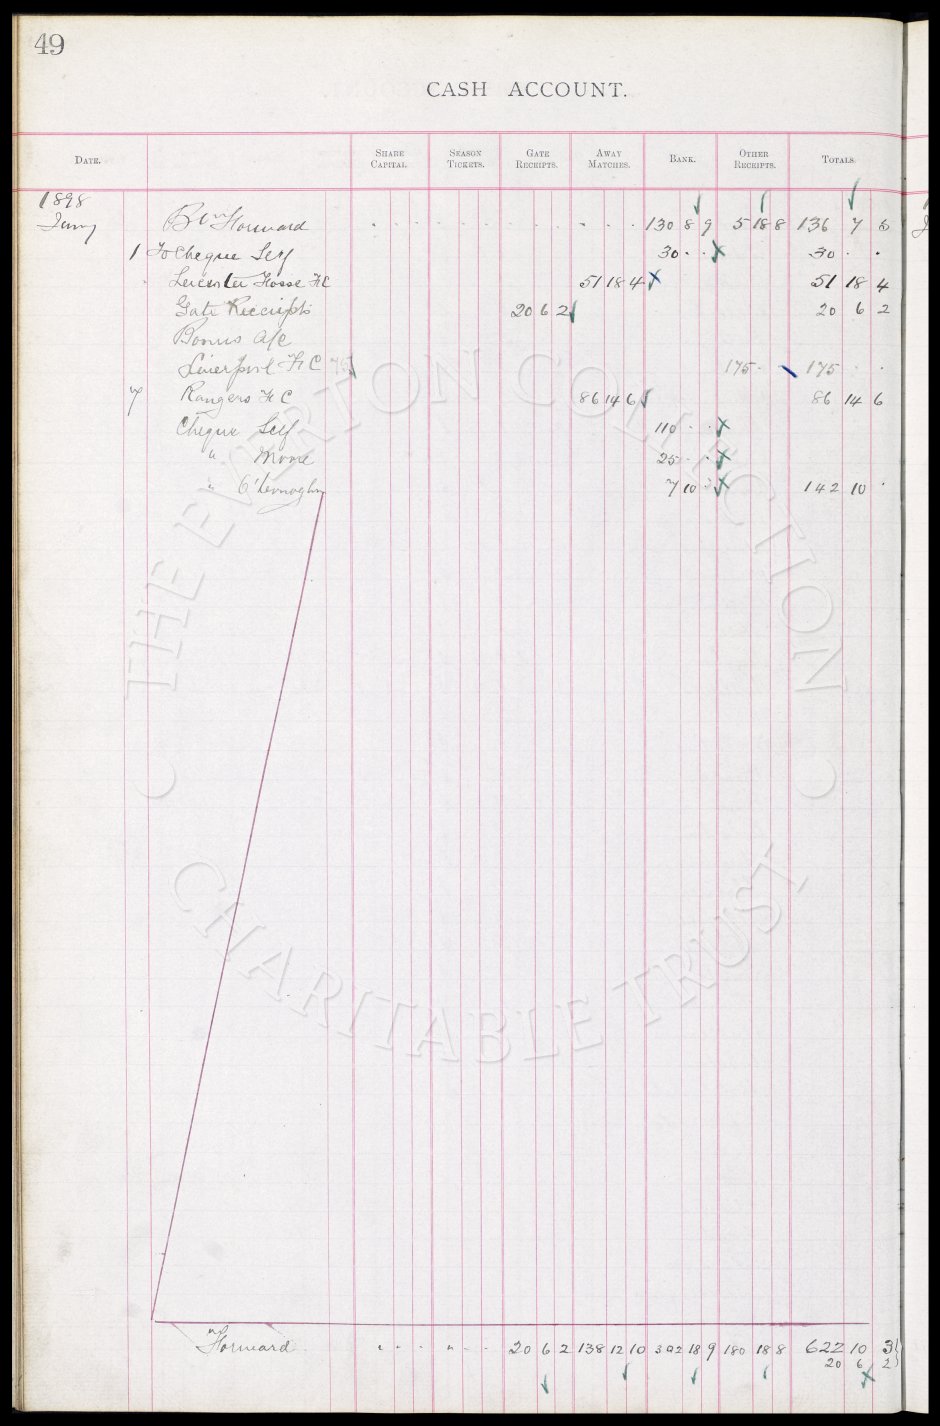 49
CASH ACCOUNT.
DATE. SHARE CAPITAL. SEASON TICKETS. GATE RECEIPTS. AWAY MATCHES. BANK. OTHER RECEIPTS. TOTALS.
1898
Jany Bt Forward 130 8 9 5 18 8 136 7 5
1 To Cheque Self 30 · · 30 · ·
Leicester Fosse F C 51 18 4 51 18 4
Gate Receipts 20 6 2 20 6 2
Bonus a/c
Liverpool F C 175 · · 175 · ·
7 Rangers F C 86 14 6 86 14 6
Cheque Self 110 · ·
" Moore 25 · ·
" 7 10 · 142 10 ·
Forward 20 6 2 138 12 10 302 18 9 180 18 8 622 10 3
20 6 2
THE EVERTON COLLECTION
CHARITABLE TRUST